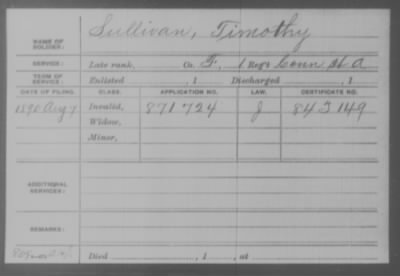 NAME OF SOLDIER: Sullivan, Timothy
SERVICE: Late rank, Co. F, 1 Reg't Conn H A
TERM OF SERVICE: Enlisted , 1 Discharged , 1
DATE OF FILING. CLASS. APPLICATION NO. LAW. CERTIFICATE NO.
1890 Aug 7 Invalid, 871 724 J 843 149
Widow,
Minor,
ADDITIONAL SERVICES:
REMARKS:
Died , 1 , at